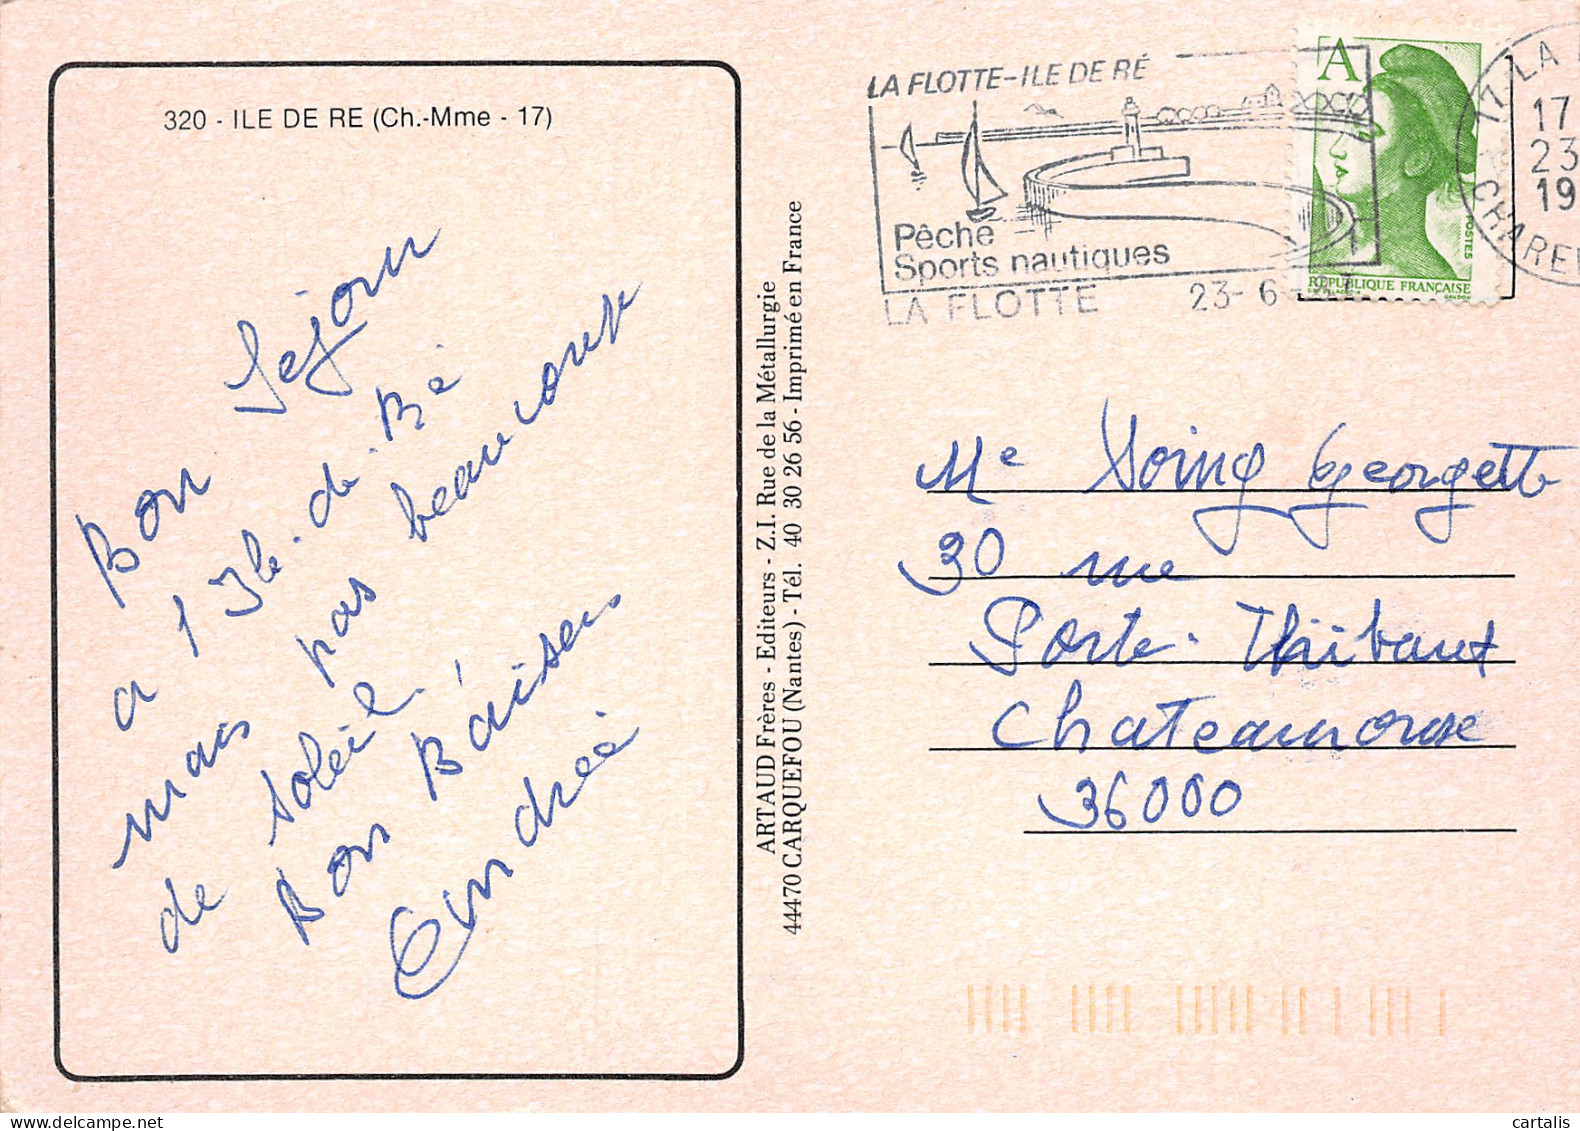 320 - ILE DE RE (Ch.-Mme - 17)
Bon Sejour
a l Ile-de-Ré
mais pas beaucoup
de soleil.
Bons Baisers
Andrée
ARTAUD Frères - Editeurs - Z.I. Rue de la Métallurgie
44470 CARQUEFOU (Nantes) - Tél. 40 30 26 56 - Imprimé en France
LA FLOTTE-ILE DE RÉ
Pêche
Sports nautiques
LA FLOTTE 23-6
A
POSTES
RÉPUBLIQUE FRANÇAISE
GANDON
17 LA
17
23
19
CHAREN
Me Soing Georgette
30 rue
Porte Thibaut
Chateauroux
36000
cartalis